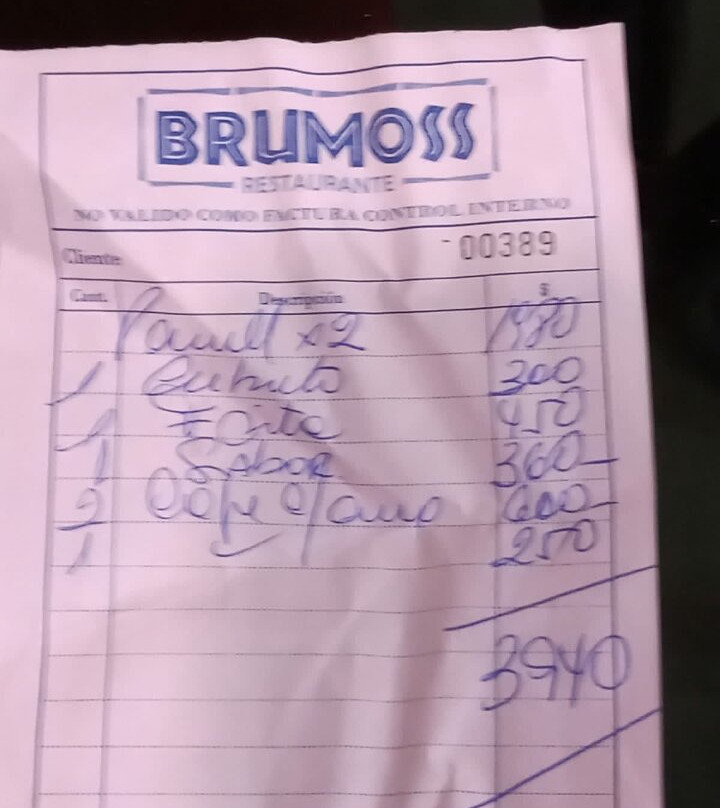 BRUMOSS
RESTAURANTE
NO VALIDO COMO FACTURA CONTROL INTERNO
Cliente -00389
Cant. Descripción $
x2 1980
1 300
1 450
1 Sabor 360-
2 Cafe 600-
1 250
3940